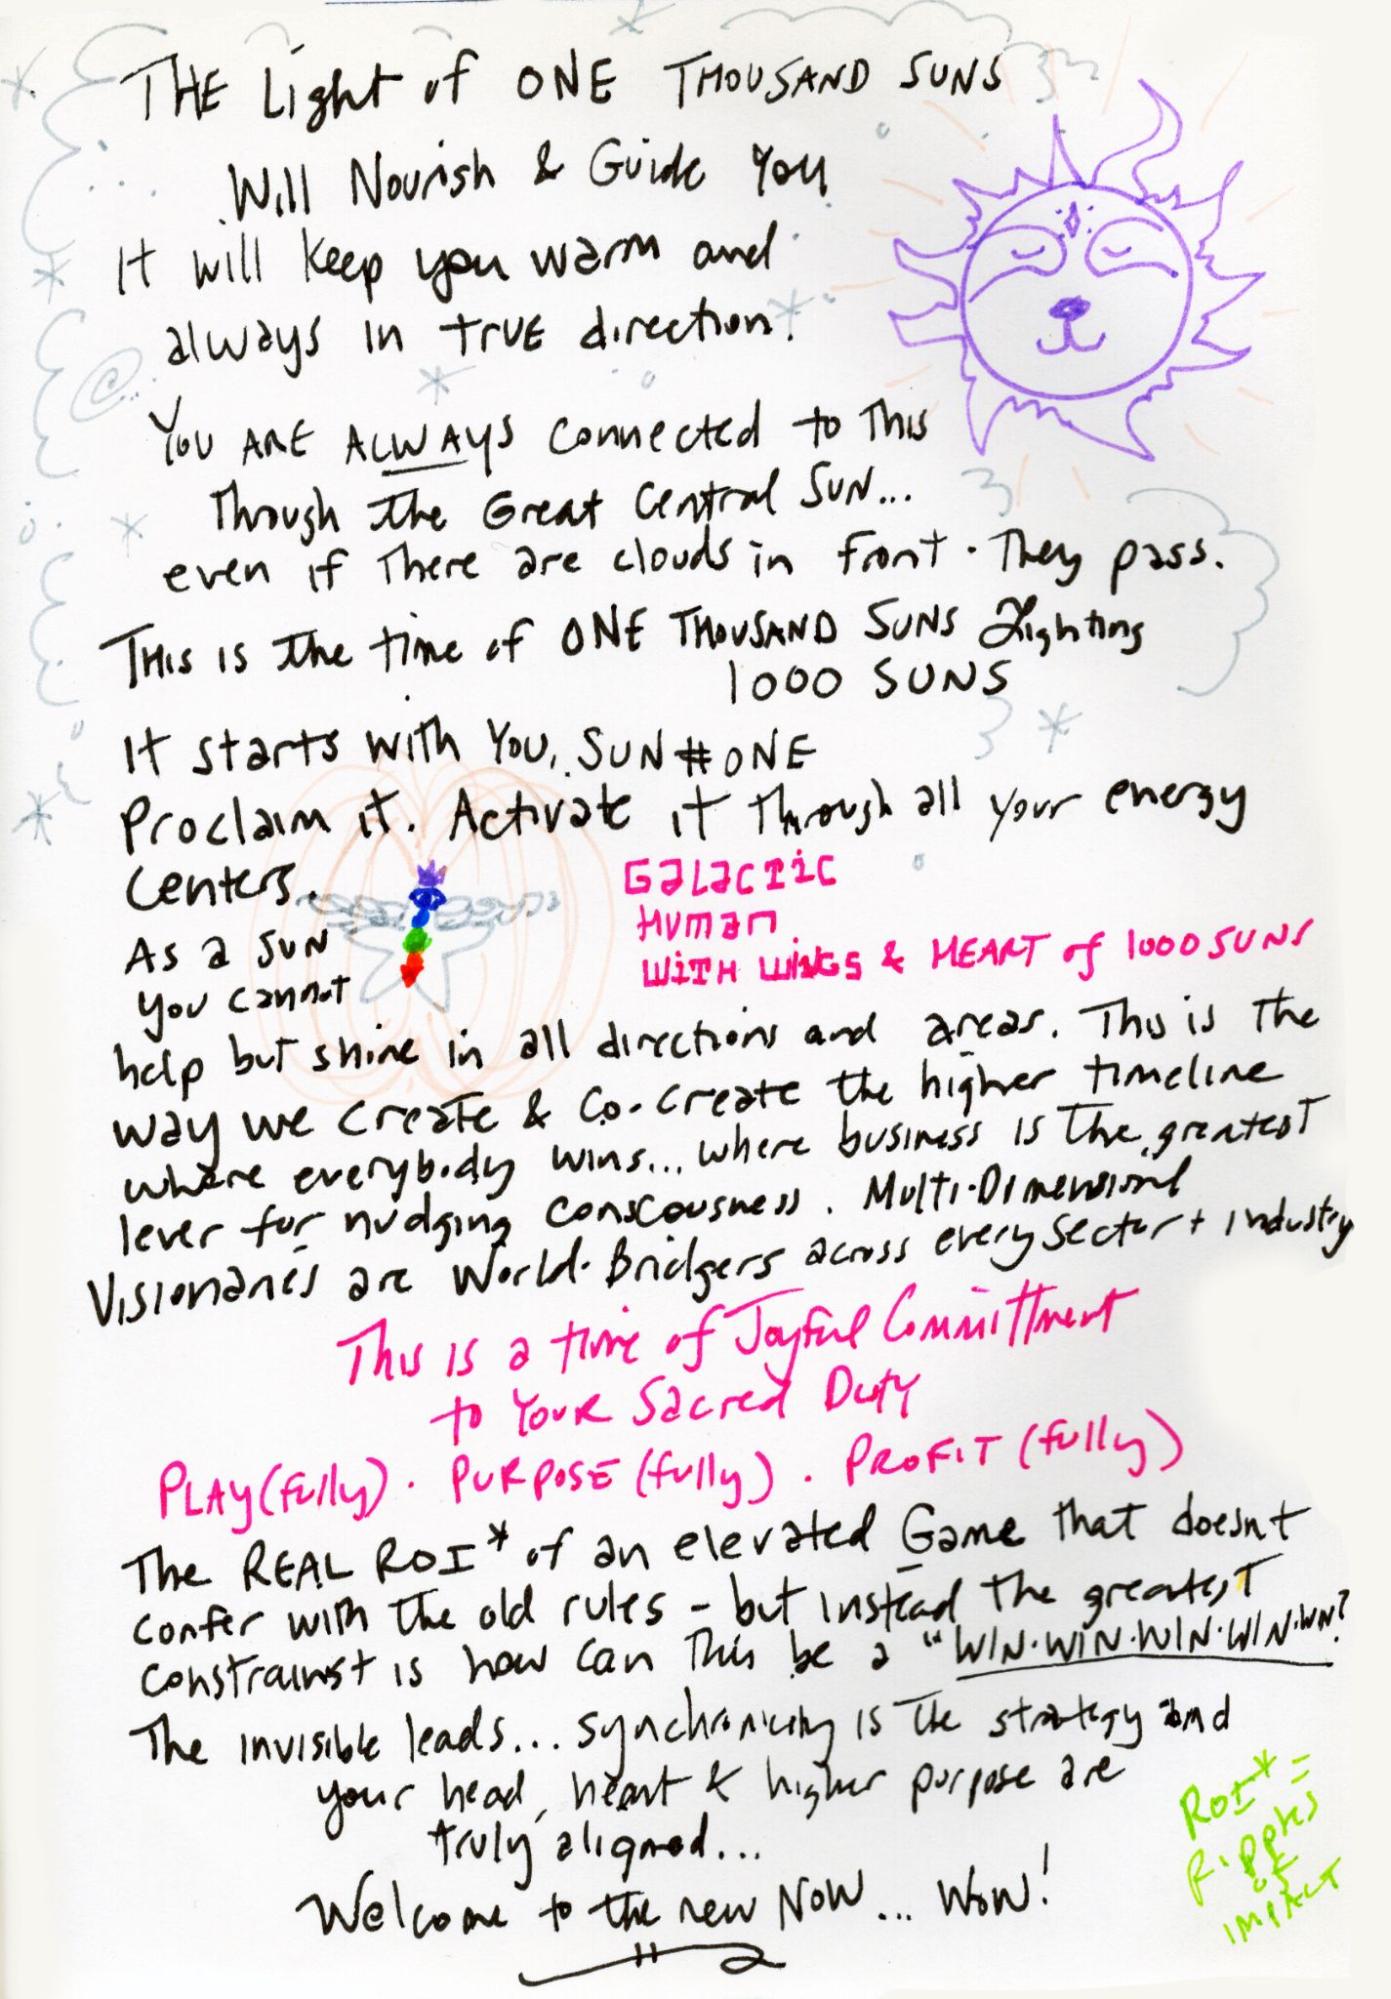 THE Light of ONE THOUSAND SUNS
Will Nourish & Guide You
It will keep you warm and
always in TRUE direction!
YOU ARE ALWAYS connected to This
Through the Great Central Sun...
even if There are clouds in front. They pass.
THIS IS the time of ONE THOUSAND SUNS Lighting
1000 SUNS
It starts with You, SUN #ONE
Proclaim it. Activate it Through all your energy
Centers.
GALACTIC
HUMAN
WITH WINGS & HEART of 1000 SUNS
As a SUN
you cannot
help but shine in all directions and areas. This is The
way we create & Co-create the higher timeline
where everybody wins... where business is The greatest
lever for nudging conscousness. Multi-Dimensional
Visionaries are World-Bridgers across every sector + Industry
This is a time of Joyful Committment
to Your Sacred Duty
PLAY(fully). PURPOSE(fully). PROFIT(fully)
The REAL ROI* of an elevated Game that doesnt
confer with the old rules - but instead the greatest
constrainst is how can This be a "WIN.WIN.WIN.WIN.WIN?
The invisible leads... synchronicity is the strategy and
your head, heart & higher purpose are
truly aligned...
Welcome to the new NOW... WOW!
ROI* =
Ripples
of
IMPACT